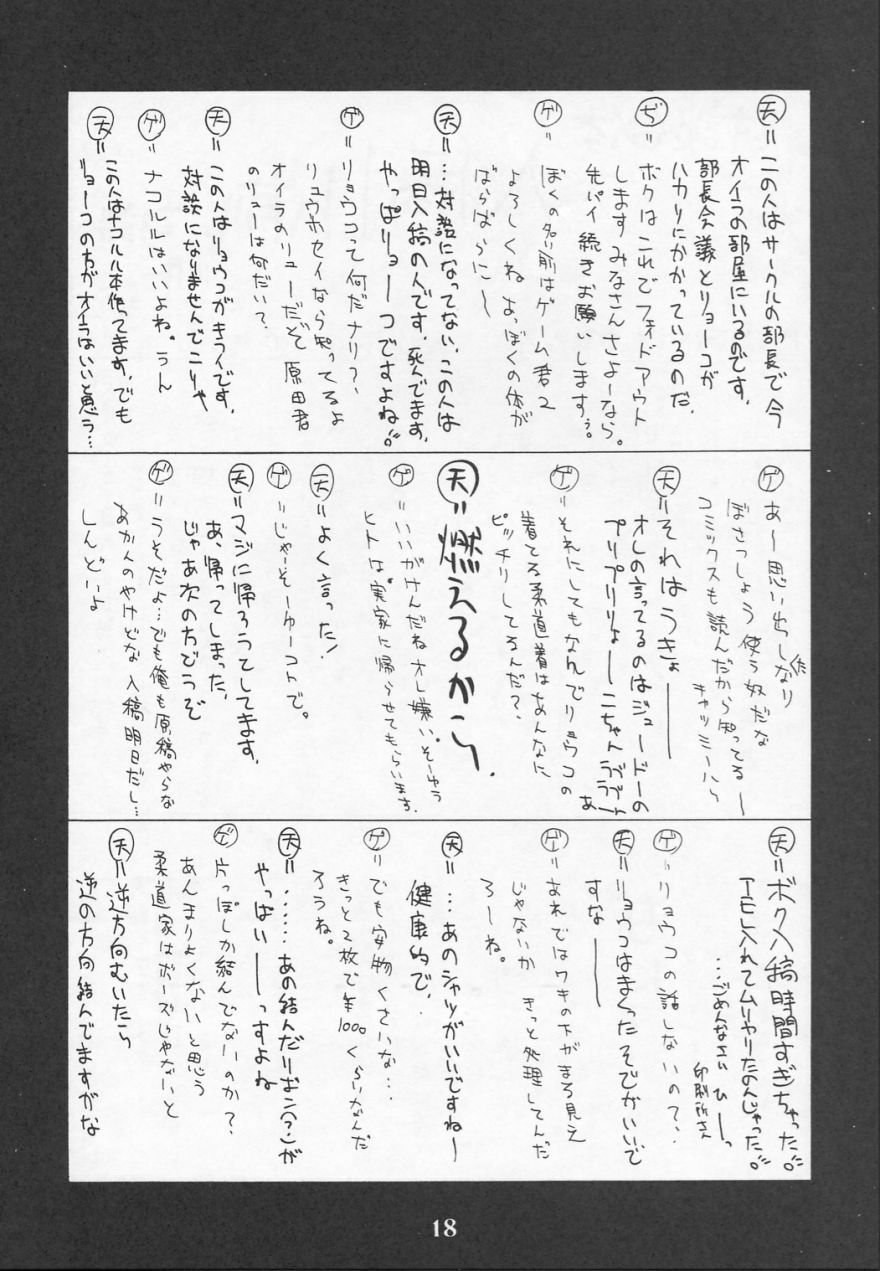 天＝この人はサークルの部長で今
オイラの部屋にいるのです。
部長会議とリョーコが
ハカリにかかっているのだ。
ぢ＝ボクはこれでフェイドアウト
します みなさんさよーなら。
先パイ続きお願いしますぅ。
ゲ＝ぼくの名前はゲーム君2
よろしくね あ、ぼくの体が
ばらばらに〜
天＝…対談になってない、この人は
明日入稿の人です、死んでます。
やっぱリョーコですよね。
ゲ＝リョウコって何だナリ？、
リュウホセイなら知ってるよ
オイラのリューだぞ 原田君
のリューは何だい？
天＝この人はリョウコがキライです。
対談になりませんでこりゃ
ゲ＝ナコルルはいいよね。うん
天＝この人はナコルル本作ってます。でも
リョーコの方がオイラはいいと思う…
ゲ＝あー思い出しなり
ぼさつしょう 使う奴だな
コミックスも読んだから知ってるー
キャッミーハら
天＝それはうきょ———
オレの言ってるのはジュードーの
プリプリリょーこちゃんラブラブよぁ
ゲ＝それにしてもなんでリョウコの
着てる柔道着はあんなに
ピッチリしてるんだ？、
天＝燃えるから、
ゲ＝いいかげんだねオレ嫌い、そーゆう
ヒトは実家に帰らせてもらいます。
天＝よく言った！
ゲ＝じゃーそーゆーコトで。
天＝マジに帰ろうてしてます。
あ、帰ってしまった、
じゃあ次の方どうぞ
ゲ＝うそだよ…でも俺も原稿やらな
あかんのやけどな 入稿明日だし…
しんどいよ
天＝ボク入稿時間すぎちゃった
…ごめんなさい ひ——っ
印刷所さん
ゲ＝リョウコの話しないので、、
天＝リョウコはまくったそでがいいで
すな———
ゲ＝あれではワキの下がまる見え
じゃないか きっと処理してんだ
ろーね。
天＝…あのシャツがいいですねー
健康的で、、
ゲ＝でも安物くさいな…
きっと2枚で￥1000くらいなんだ
ろうね。
天＝……あの結んだリボン(？)が
やっぱい——っすよね
ゲ＝片っぽしか結んでないのか？、
あんまりよくないと思う
柔道家はボーズじゃないと
天＝逆方向むいたら
逆の方向結んでますがな
18